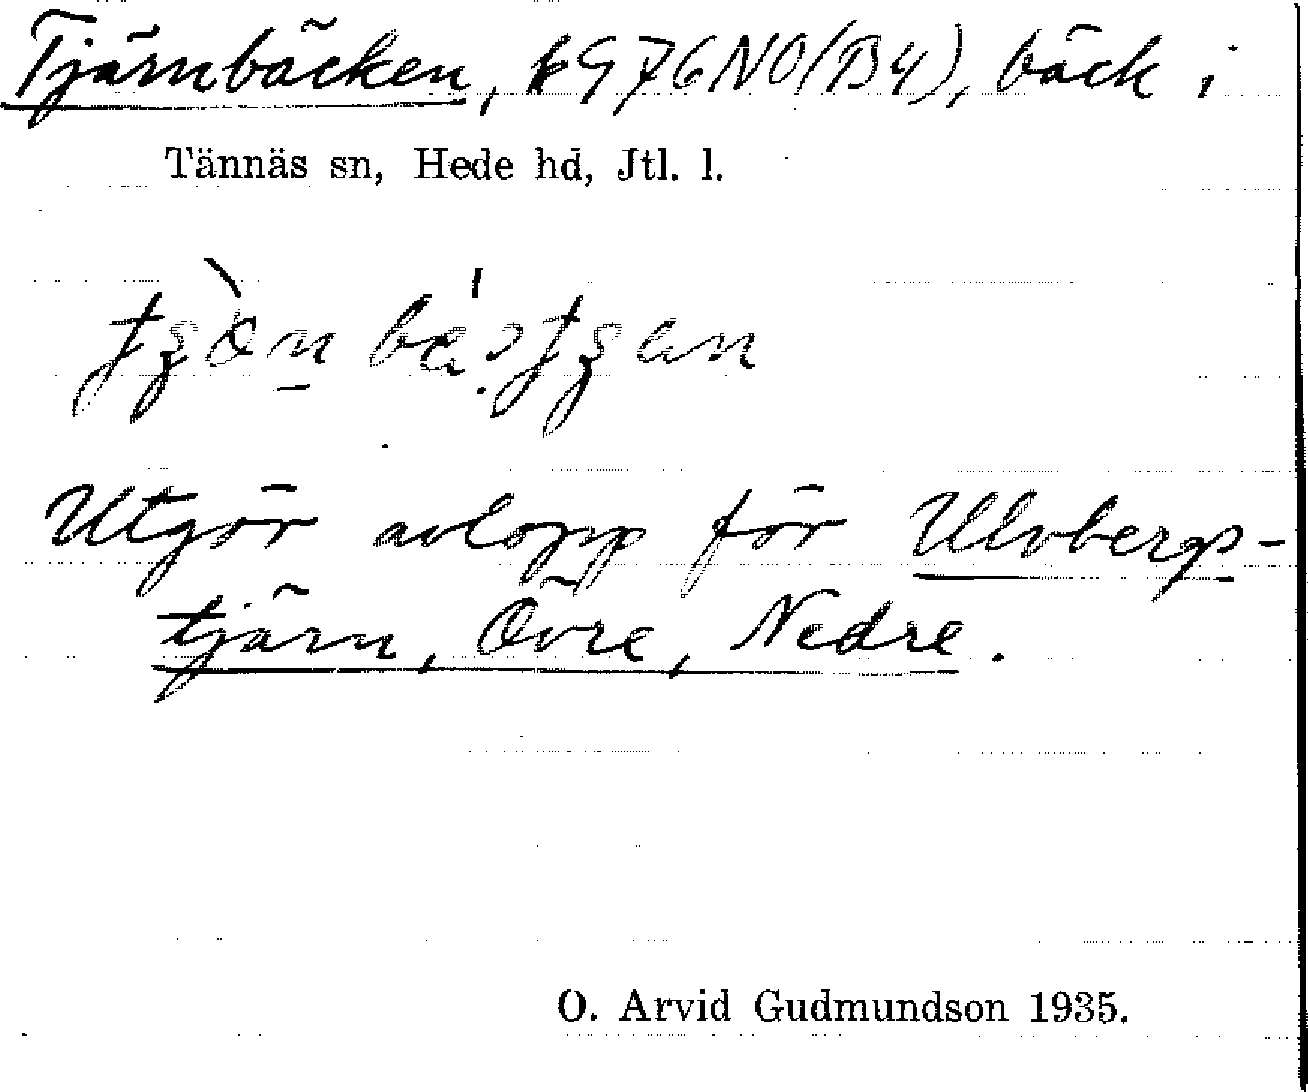 Tjärnbäcken, k976NO(B4), bäck i
Tännäs sn, Hede hd, Jtl. l.
Utgör avlopp för Ulvbergs-
tjärn, Övre, Nedre.
O. Arvid Gudmundson 1935.